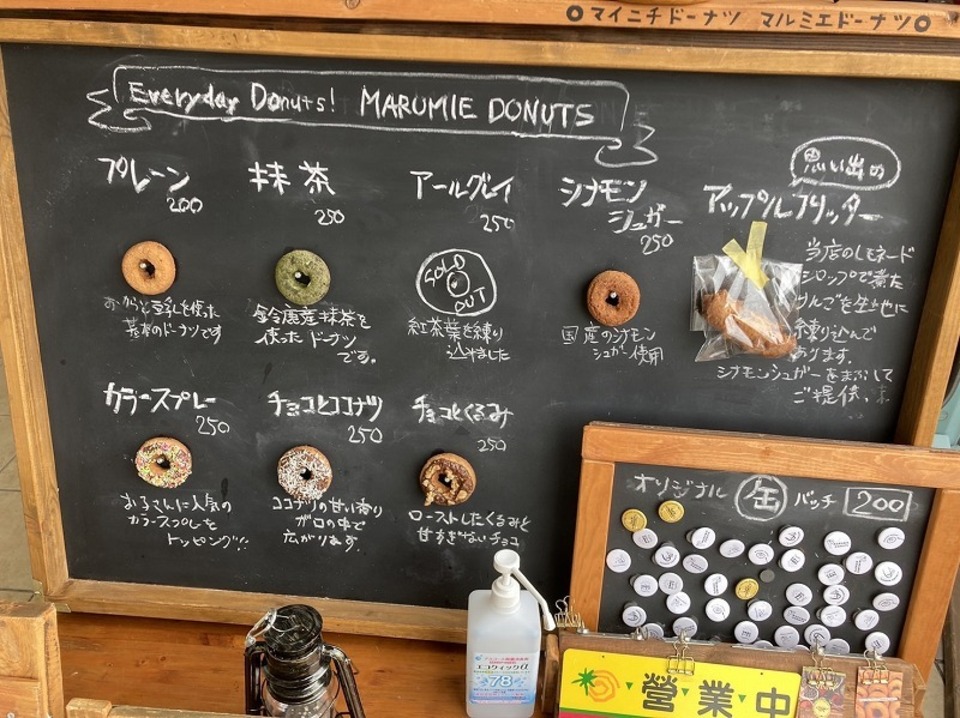 マイニチドーナツ マルミエドーナツ
Everyday Donuts! MARUMIE DONUTS
プレーン
200
おからと豆乳を使った
基本のドーナツです
抹茶
250
鈴鹿産抹茶を
使ったドーナツ
です。
アールグレイ
250
SOLD OUT
紅茶葉を練り
込みました
シナモン
シュガー
250
国産のシナモン
シュガー使用
思い出の
アップルフリッター
当店のレモネード
シロップで煮た
リンゴを生地に
練り込んで
あります。
シナモンシュガーをまぶして
ご提供。
カラースプレー
250
お子さんに人気の
カラースプレーを
トッピング!!
チョコとココナツ
250
ココナツの甘い香り
がロの中で
広がります。
チョコとくるみ
250
ローストしたくるみと
甘すぎないチョコ
オリジナル 缶 バッチ 200
エコクイックα
78
営業中